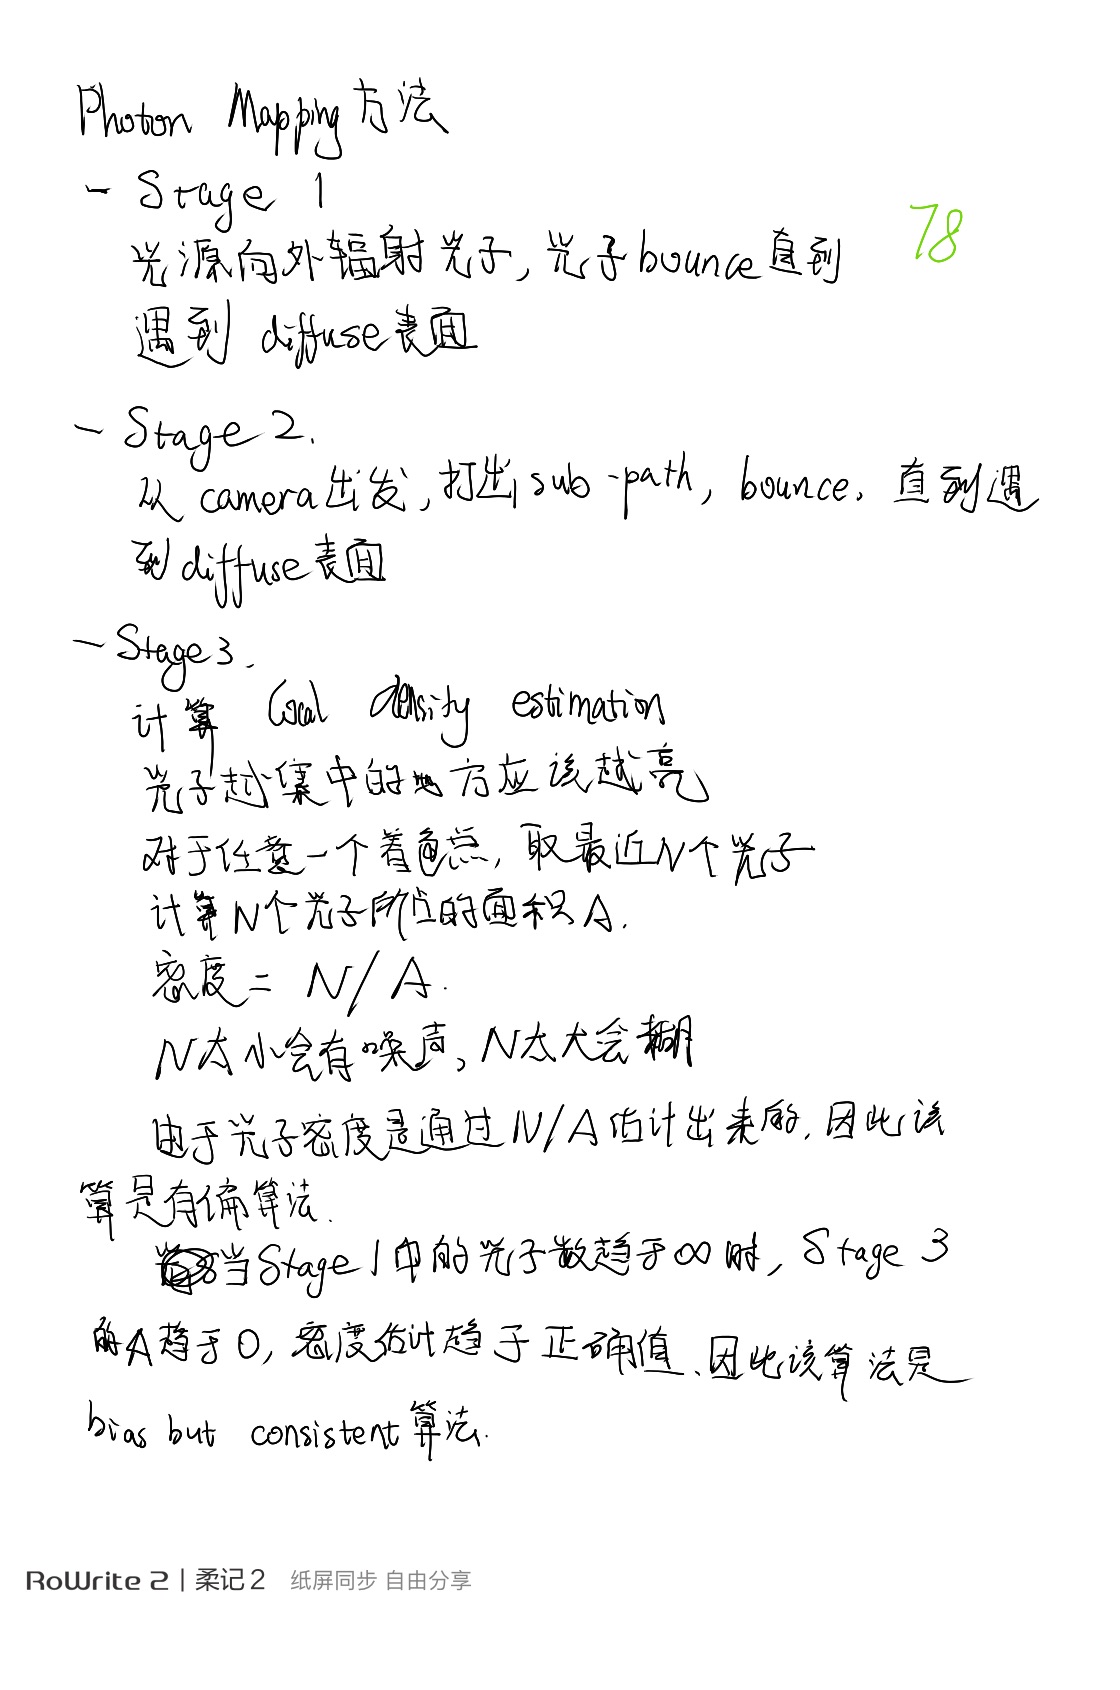 Photon Mapping 方法
- Stage 1
78
光源向外辐射光子, 光子bounce直到
遇到 diffuse表面
- Stage 2.
从 camera出发, 打出sub-path, bounce, 直到遇
到diffuse表面
- Stage 3.
计算 local density estimation
光子越集中的地方应该越亮
对于任意一个着色点, 取最近N个光子
计算N个光子所占的面积A.
密度 = N/A.
N太小会有噪声, N太大会糊
由于光子密度是通过N/A估计出来的, 因此该
算是有偏算法.
当Stage 1中的光子数趋于∞时, Stage 3
的A趋于0, 密度估计趋于正确值、因此该算法是
bias but consistent算法.
RoWrite 2 | 柔记 2 纸屏同步 自由分享